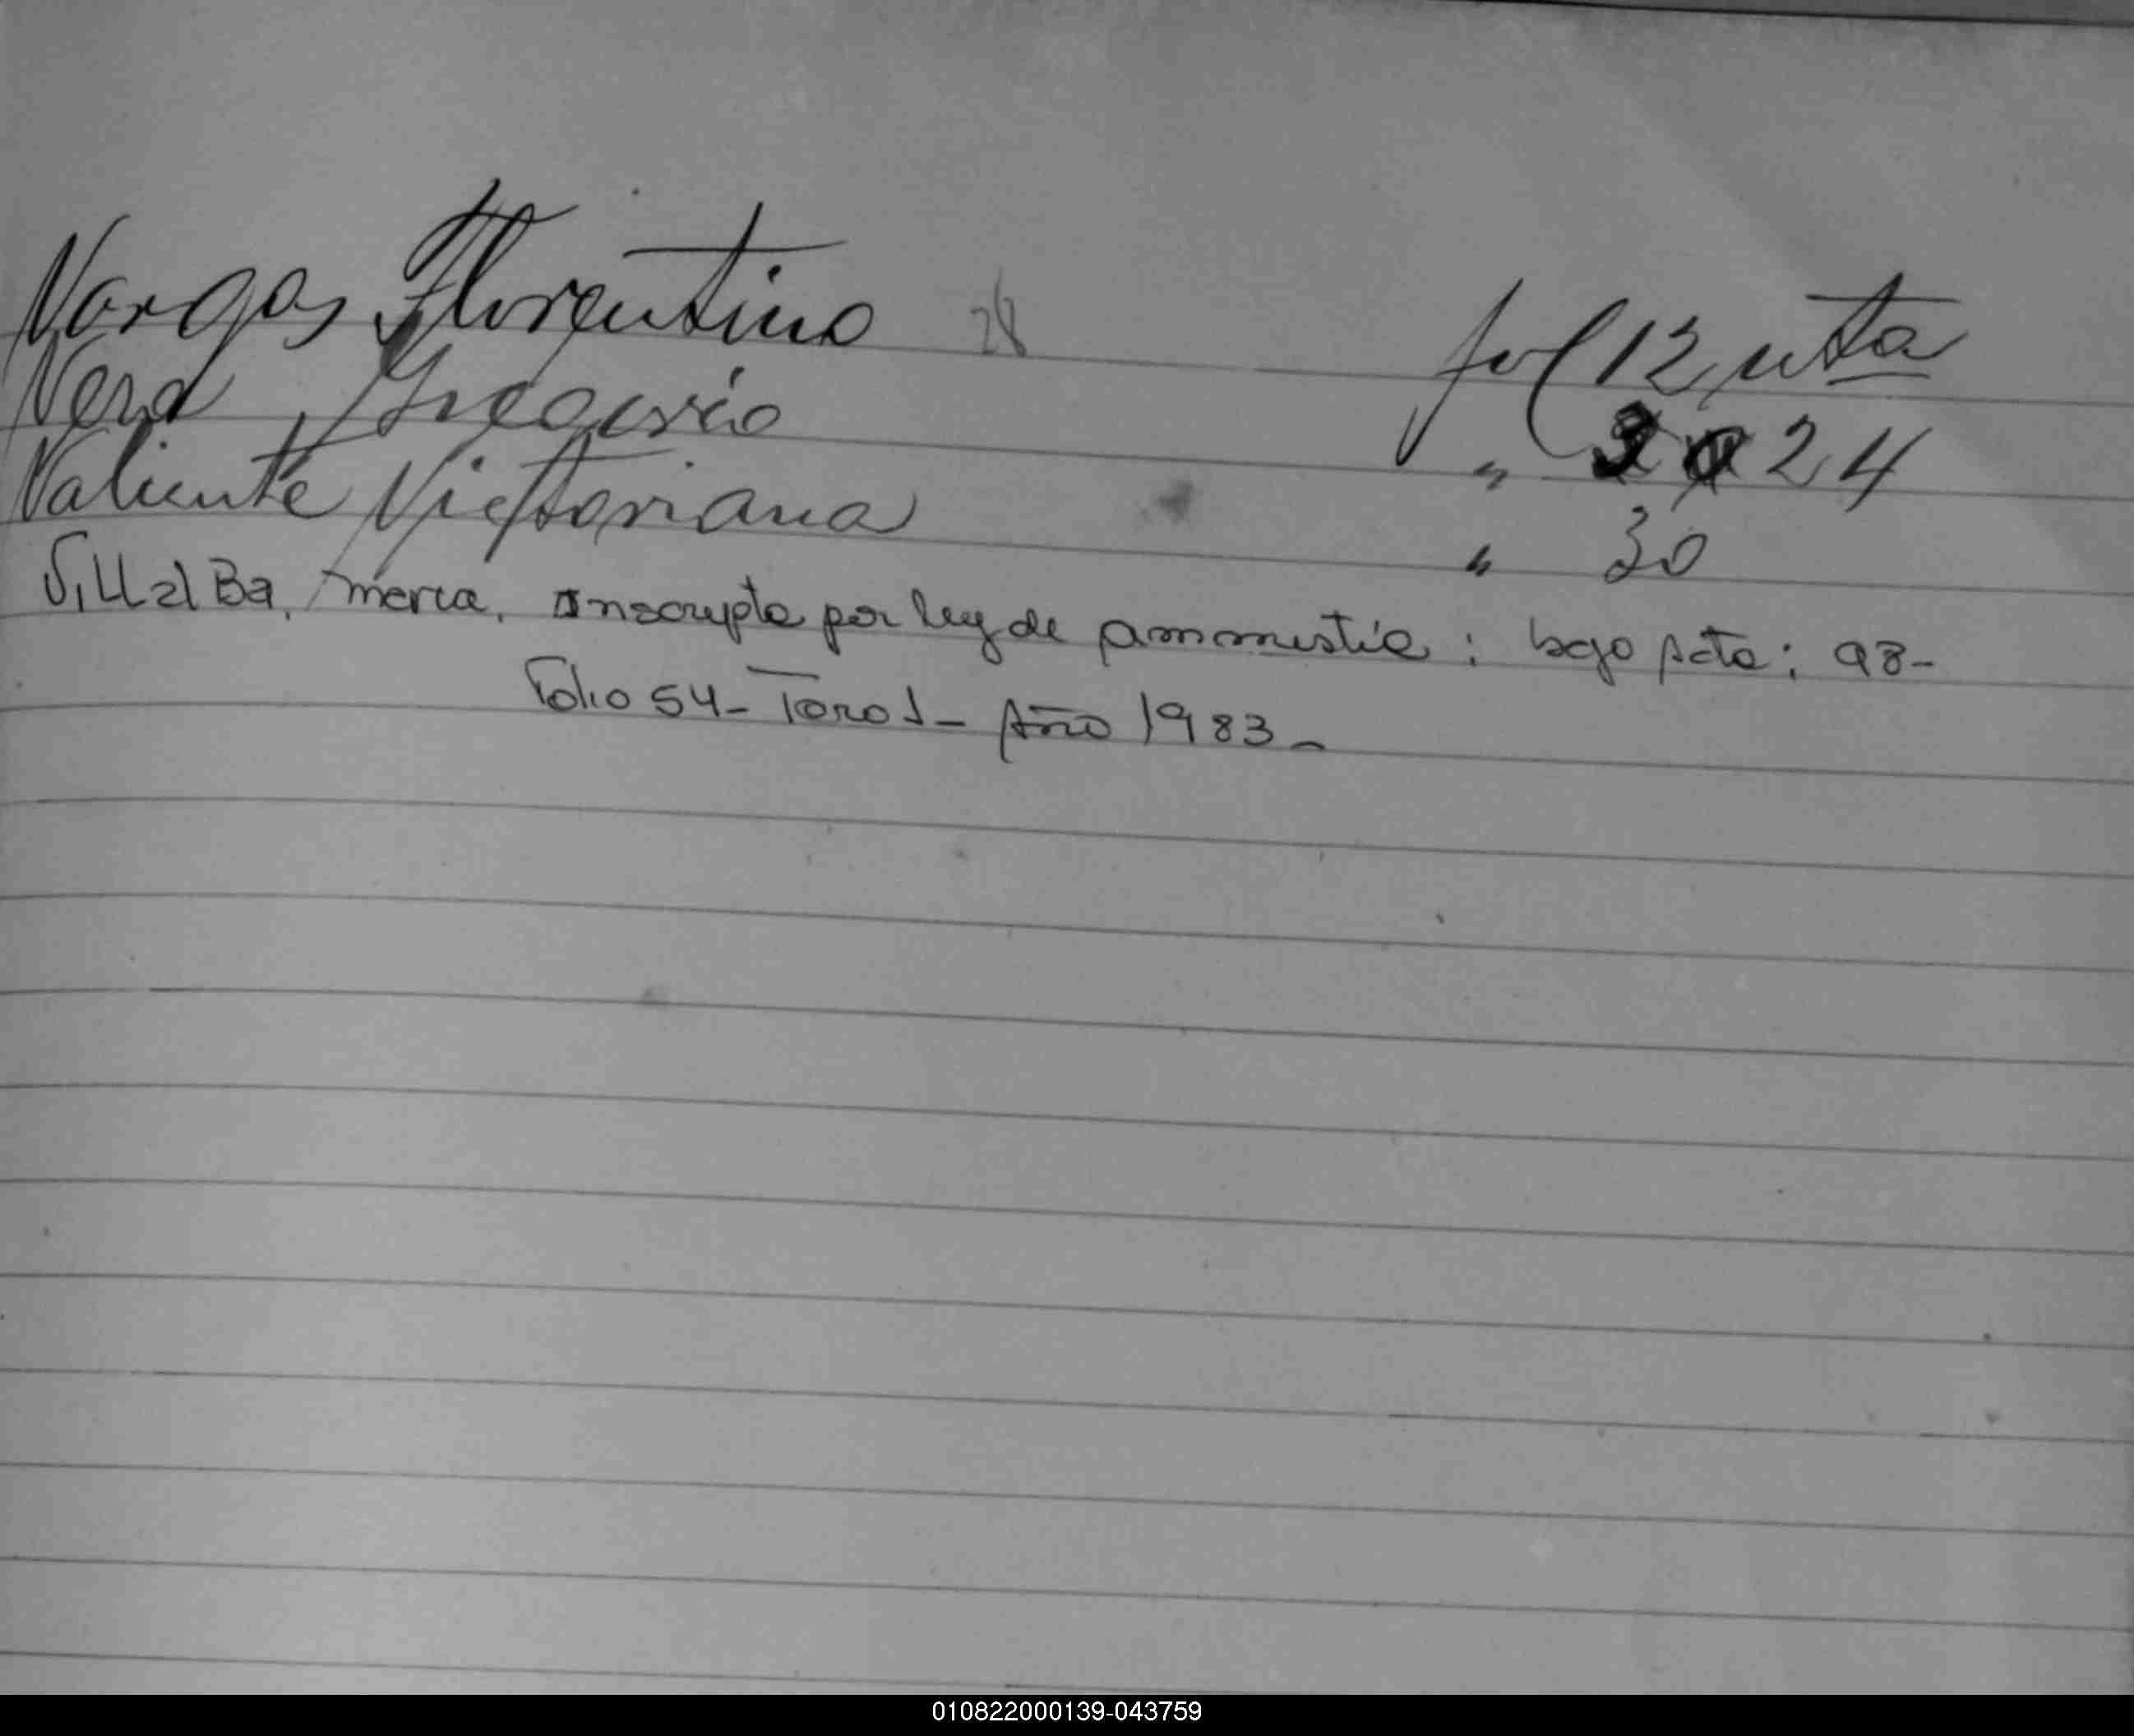 Vargas Florentino 28 fol 12 vta
Vera Gregorio " 24
Valiente Victoriana " 30
VillalBa, María, Inscripta por ley de ammistía : bajo Acta : 98-
Folio 54- Tomo 1- Año 1983-
010822000139-043759